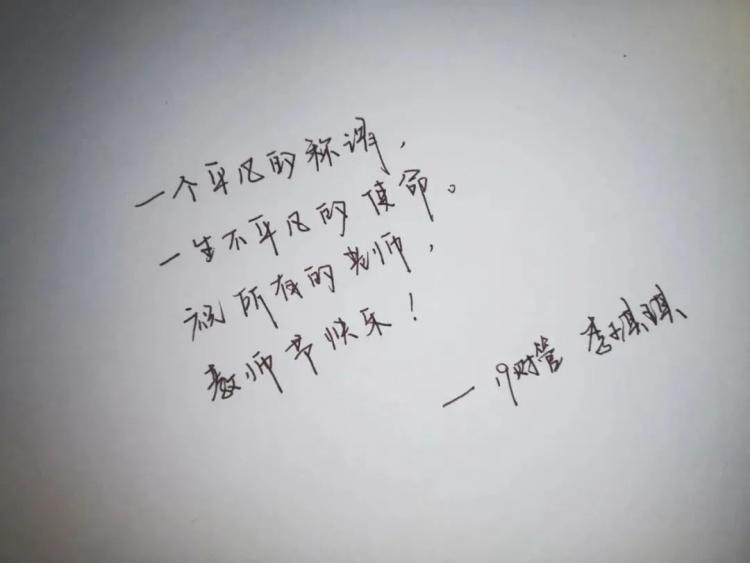 一个平凡的称谓，
一生不平凡的使命。
祝所有的老师，
教师节快乐！
—19财管 李琪琪